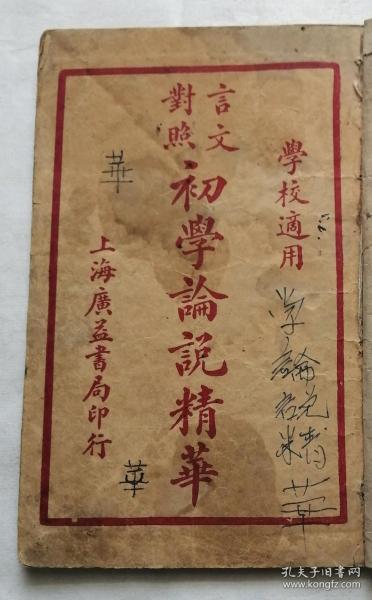 學校適用
言文
對照
初學論說精華
上海廣益書局印行
学論
說精
華
華
華
孔夫子旧书网
www.kongfz.com